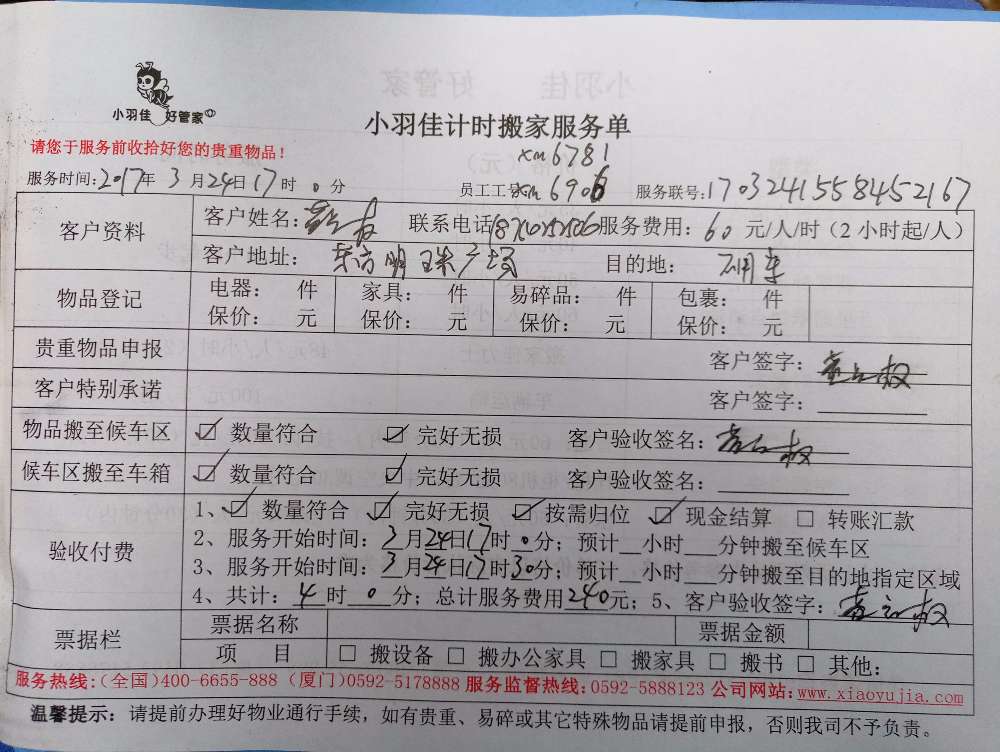 小羽佳 好管家
小羽佳计时搬家服务单
请您于服务前收拾好您的贵重物品！
xm6781
服务时间：2017年 3月24日17时0分 员工工号xm6906 服务联号：1703241558452167
客户资料 客户姓名： 联系电话 服务费用：60元/人/时（2小时起/人）
客户地址：东方明珠广场 目的地：不用车
物品登记 电器： 件 家具： 件 易碎品： 件 包裹： 件
保价： 元 保价： 元 保价： 元 保价： 元
贵重物品申报 客户签字：
客户特别承诺 客户签字：
物品搬至候车区 ☑ 数量符合 ☑ 完好无损 客户验收签名：
候车区搬至车箱 ☑ 数量符合 ☑ 完好无损 客户验收签名：
验收付费 1、☑ 数量符合 ☑ 完好无损 ☑ 按需归位 ☑ 现金结算 □ 转账汇款
2、服务开始时间：3月24日17时0分；预计__小时___分钟搬至候车区
3、服务开始时间：3月24日17时30分；预计__小时___分钟搬至目的地指定区域
4、共计：4时0分；总计服务费用240元；5、客户验收签字：
票据栏 票据名称 票据金额
项 目 □ 搬设备 □ 搬办公家具 □ 搬家具 □ 搬书 □ 其他：
服务热线：（全国）400-6655-888（厦门）0592-5178888 服务监督热线：0592-5888123 公司网站：www.xiaoyujia.com
温馨提示：请提前办理好物业通行手续，如有贵重、易碎或其它特殊物品请提前申报，否则我司不予负责。